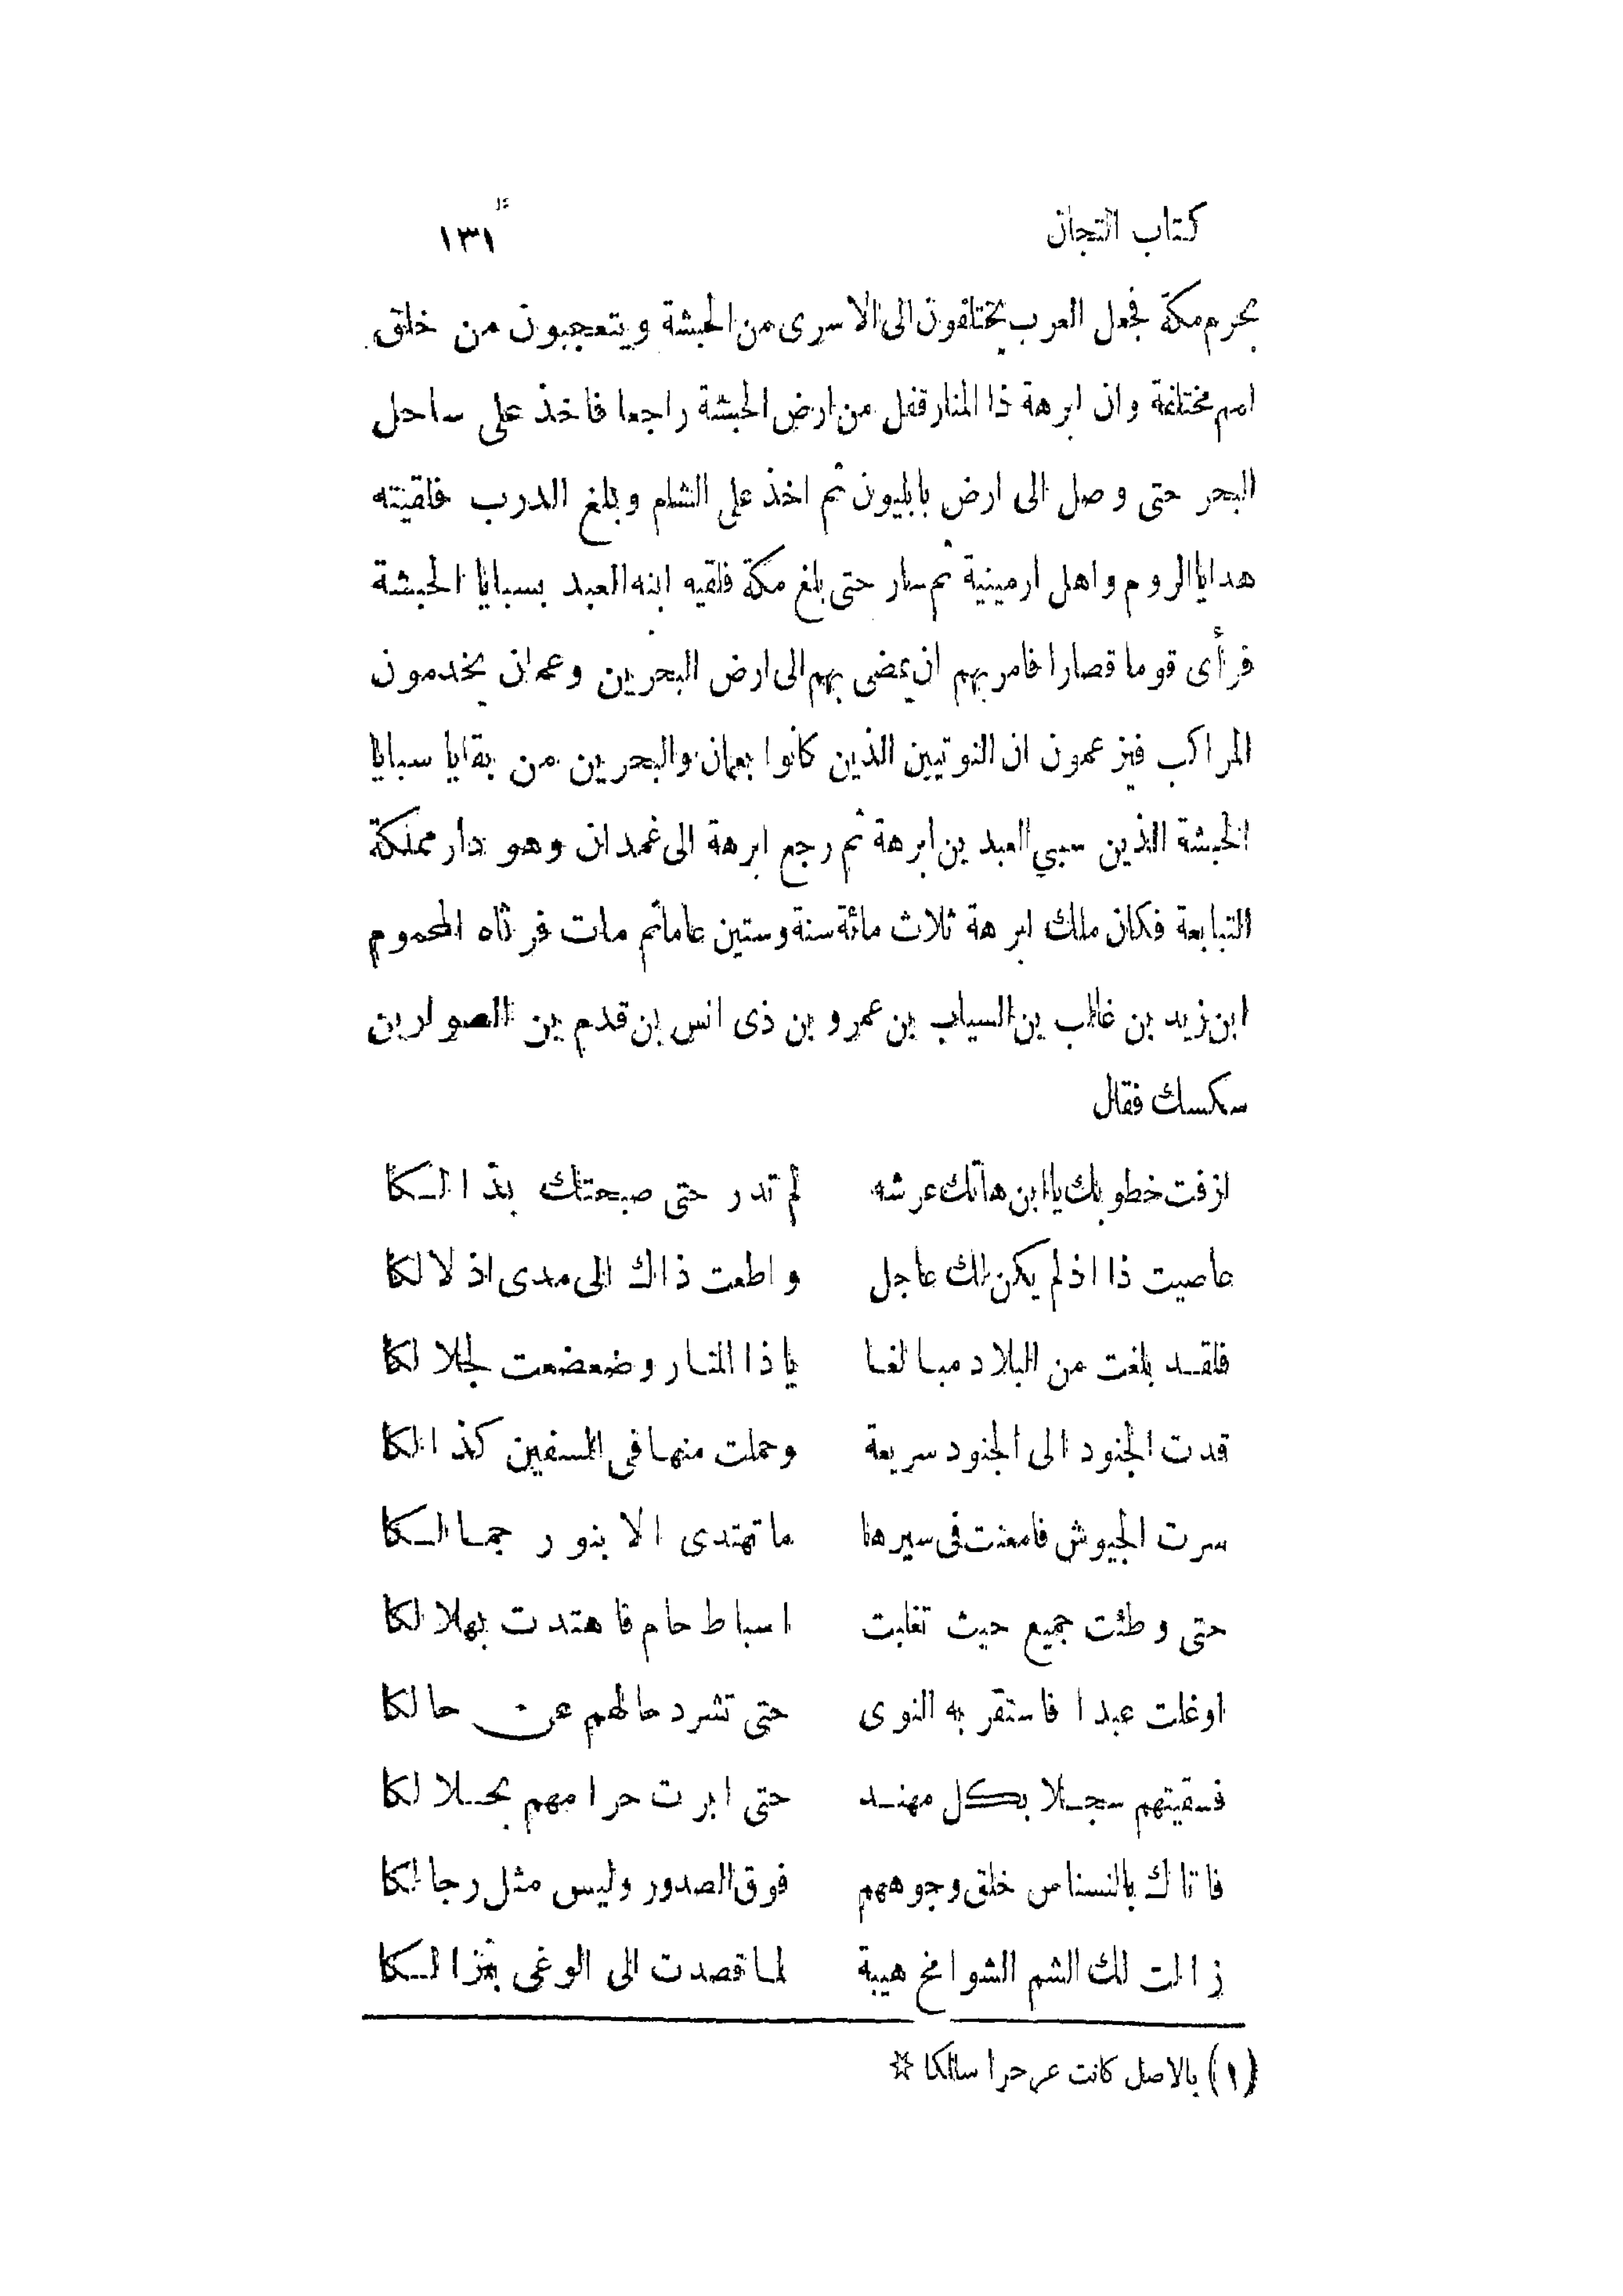 كتاب التيجان ١٣١
بحرم مكة فجعل العرب يختلفون الى الاسرى من الحبشة ويتعجبون من خلق
امم مختلفة وان ابرهة ذا المنار قفل من ارض الحبشة راجعا فاخذ على ساحل
البحر حتى وصل الى ارض بابليون ثم اخذ على الشام وبلغ الدرب فلقيته
هدايا الروم واهل ارمينية ثم سار حتى بلغ مكة فلقيه ابنه العبد بسبايا الحبشة
فرأى قوما قصارا فامر بهم ان يمضى بهم الى ارض البحرين وعمان يخدمون
المراكب فيزعمون ان النوتيين الذين كانوا بعمان والبحرين من بقايا سبايا
الحبشة الذين سبى العبد بن ابرهة ثم رجع ابرهة الى غمدان وهو دار مملكة
التبابعة فكان ملك ابرهة ثلاث مائة سنة وستين عاما ثم مات فرثاه المحموم
ابن زيد بن غالب بن السياب بن عمرو بن ذى انس بن قدم بن الصوار بن
سكسك فقال
ازفت خطوبك يا ابن هاتك عرشه لم تدر حتى صبحتك بذالكا
عاصيت ذا اذ لم يكن لك عاجل واطعت ذاك الى مدى اذلالكا
فلقد بلغت من البلاد مبالغا يا ذا المنار وضعضعت لجلالكا
قدت الجنود الى الجنود سريعة وحملت منها فى السفين كذالكا
سرت الجيوش فامعنت فى سيرها ما تهتدى الا بنور جمالكا
حتى وطئت جميع حيث تغلبت اسباط حام فاهتدت بهلالكا
اوغلت عبدا فاستقر به النوى حتى تشرد حالهم عن حالكا
فسقيتهم سجلا بكل مهند حتى ابرت حرامهم بحلالكا
فاتاك بالنسناس خلق وجوههم فوق الصدور وليس مثل رجالكا
زالت لك الشم الشوامخ هيبة لما قصدت الى الوغى بنزالكا
(١) بالاصل كانت عرحرا سالكا ☆